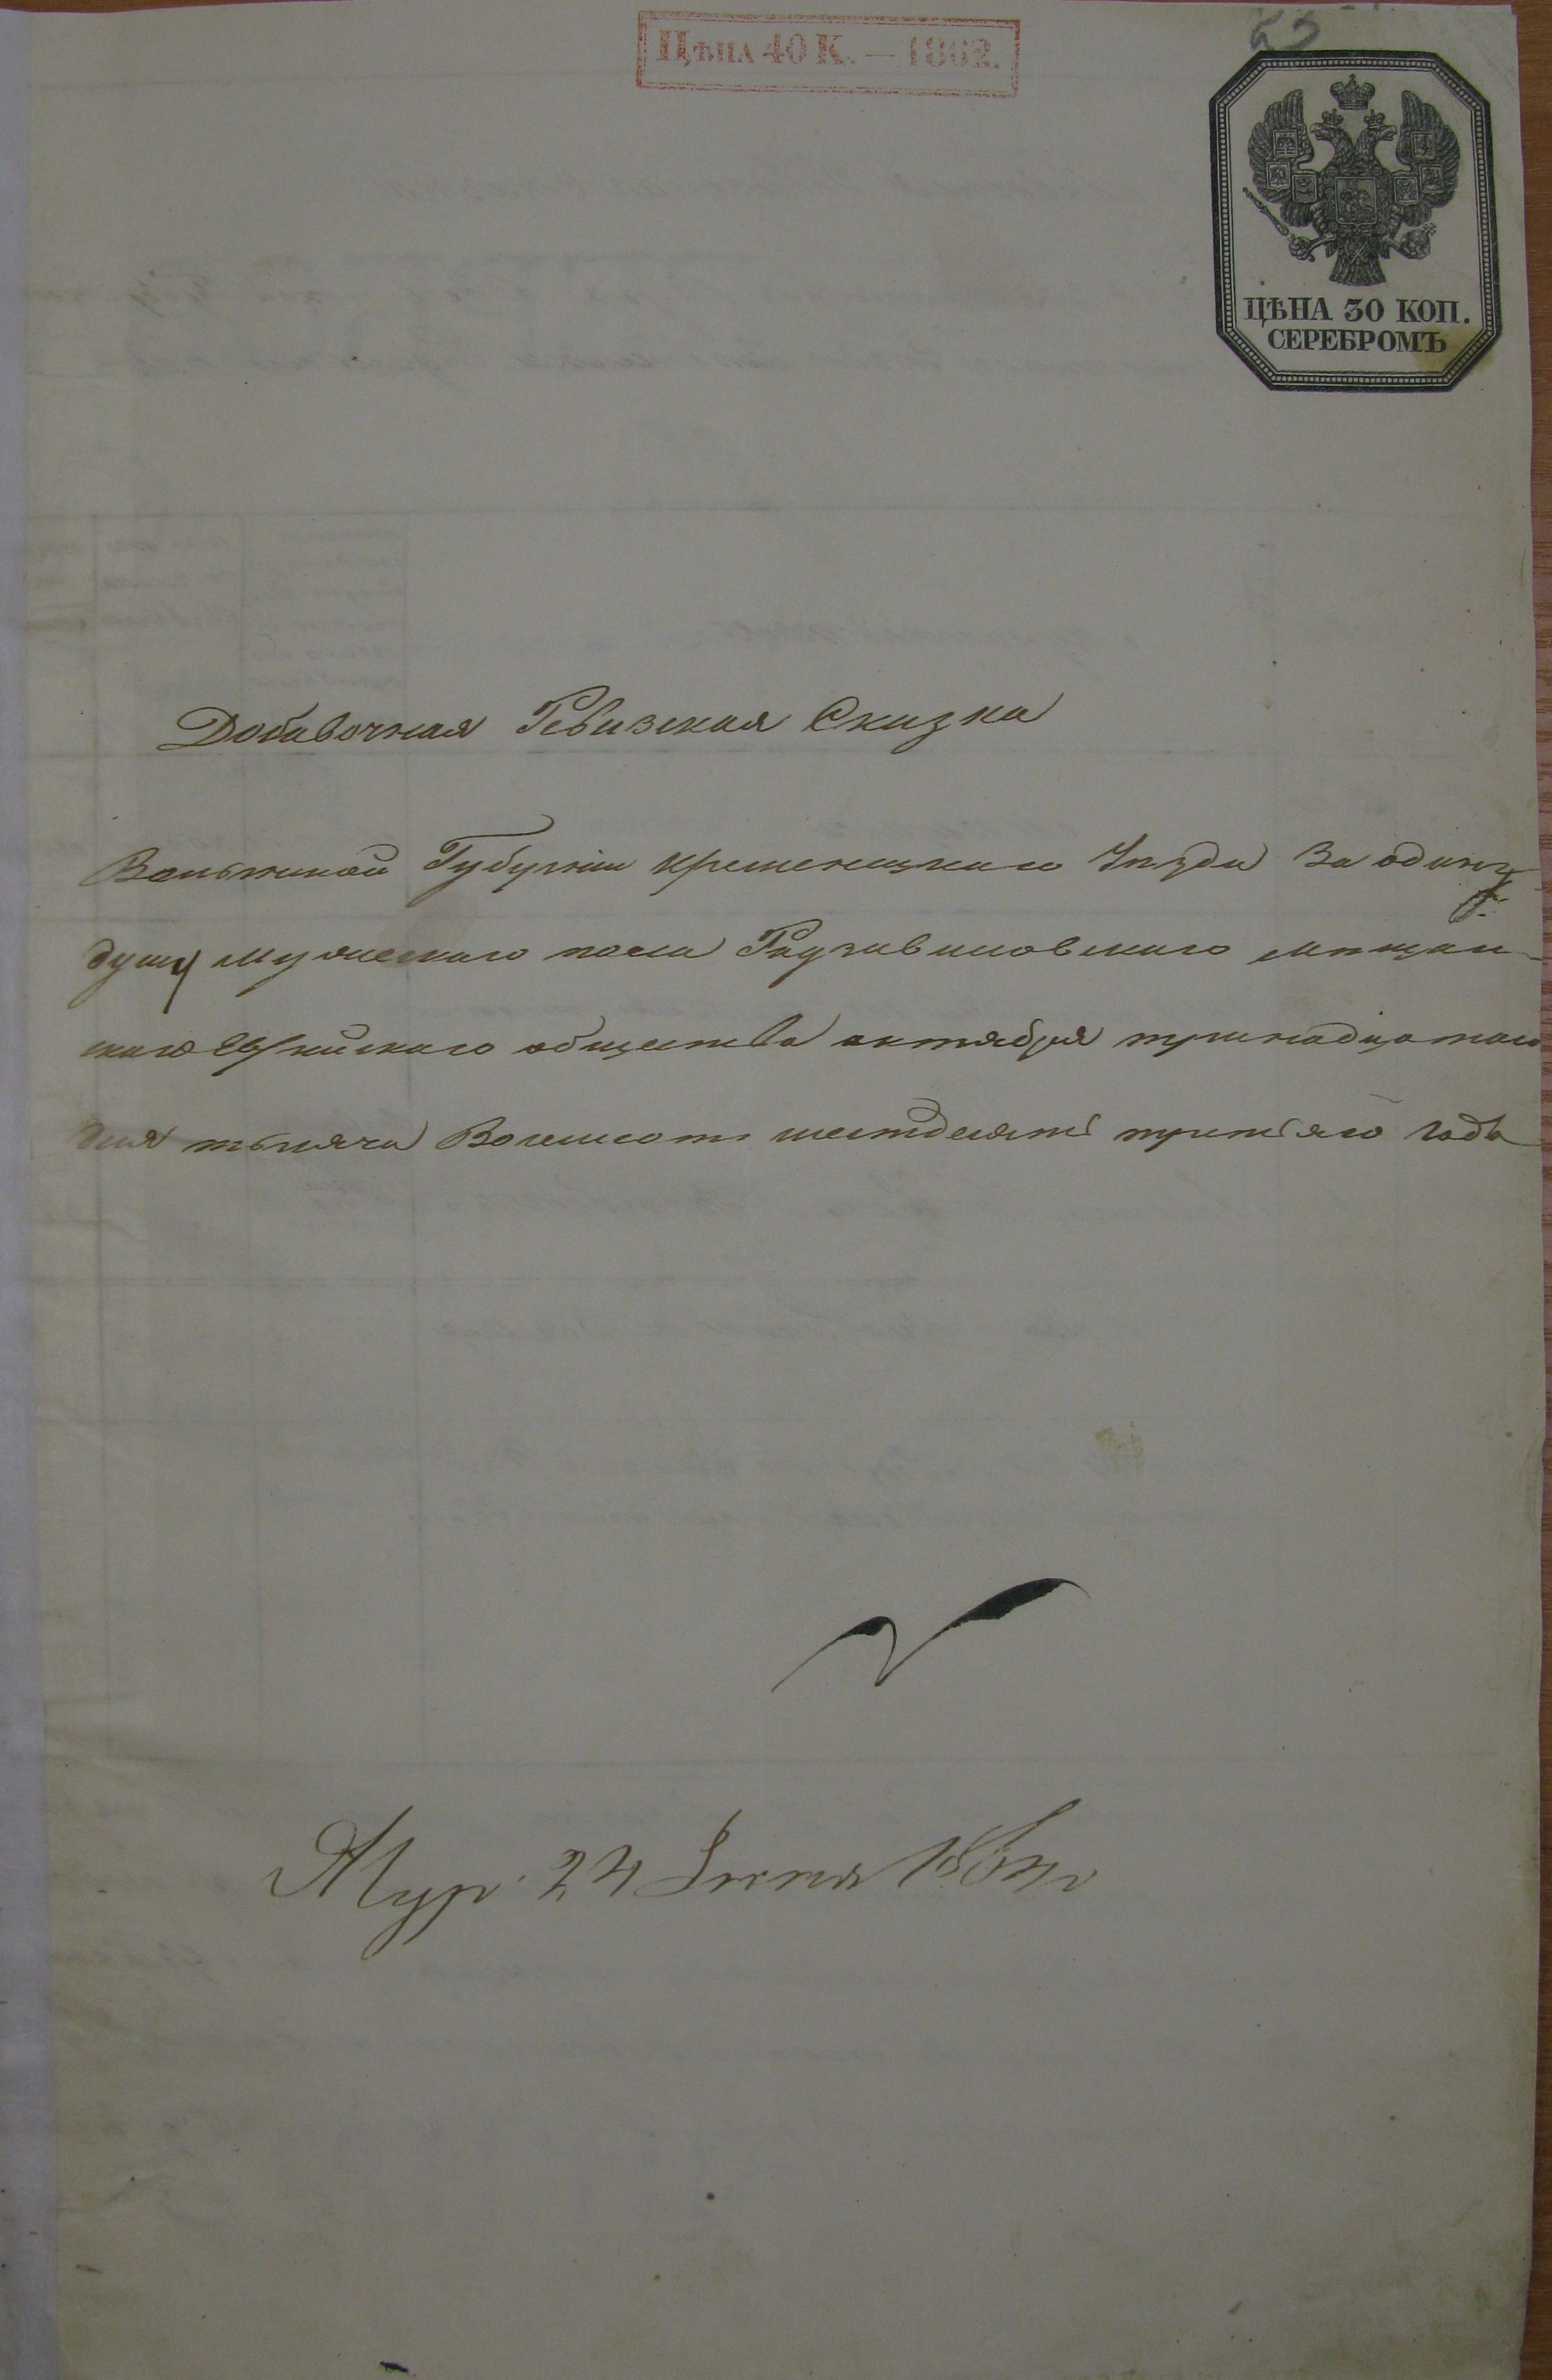 Цѣна 40 К. — 1862.
ЦѢНА 30 КОП.
СЕРЕБРОМЪ
Добавочная Ревизская Сказка
Волынской Губерніи Кременецкаго Уѣзда За одинъ
душу мужескаго пола Радзивиловскаго мѣщан-
скаго Еврейскаго общества октября тринадцатаго
дня тысяча Восемсотъ шестдесятъ третяго Года
24 1864